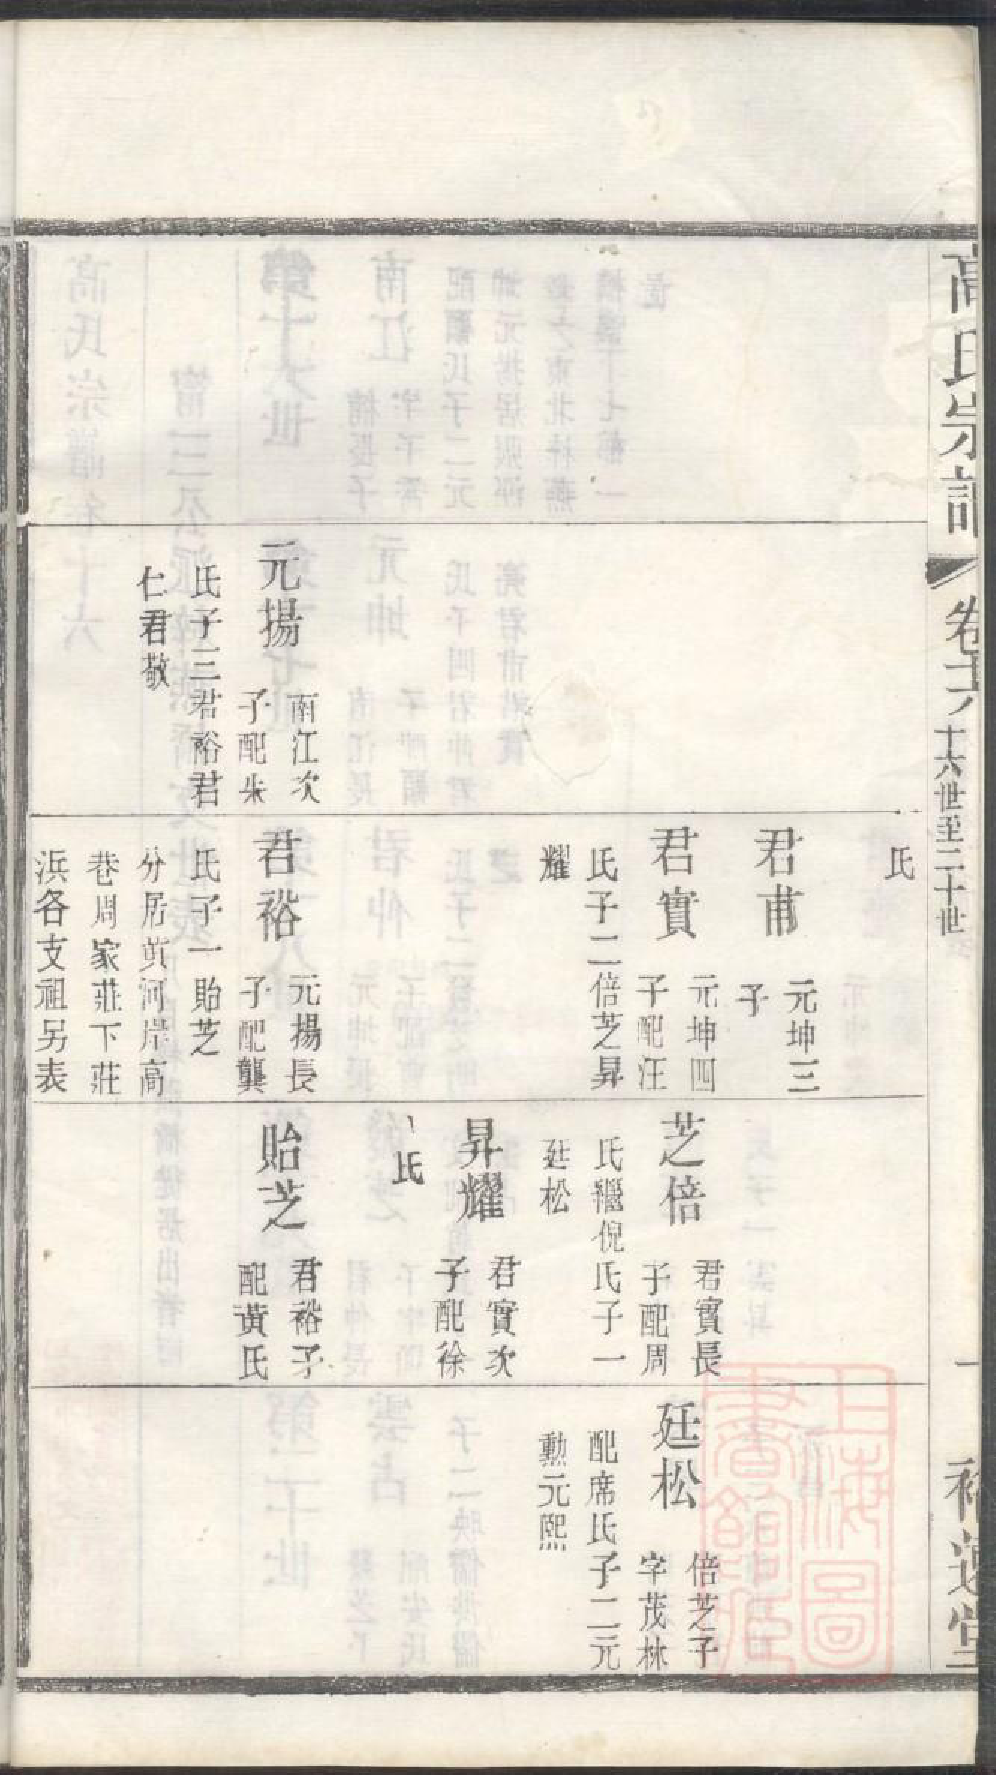 高氏宗譜
卷十六
十六世至二十世
一
元揚
南江次
子配朱
氏子三君裕君
仁君敬
氏
君甫
元坤三
子
君實
元坤四
子配汪
氏子二倍芝昇
耀
君裕
元揚長
子配龔
氏子一貽芝
分居黄河岸高
巷周家莊下莊
浜各支祖另表
芝倍
君實長
子配周
氏繼倪氏子一
廷松
昇耀
君實次
子配徐
氏
貽芝
君裕子
配黄氏
廷松
倍芝子
字茂林
配席氏子二元
勲元熙
上海圖
書館藏